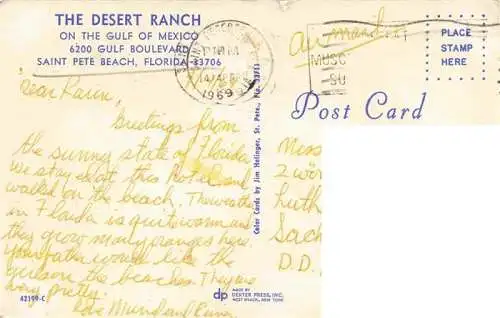 THE DESERT RANCH
ON THE GULF OF MEXICO
6200 GULF BOULEVARD
SAINT PETE BEACH, FLORIDA 33706
PM
14 APR
1969
MUSC
SU
Air mail
PLACE
STAMP
HERE
Post Card
Dear Karen,
Greetings from
the sunny state of Florida
We stay at this hotel and
walked on the beach. The weather
in Florida is quite warm and
they grow many oranges here.
Your father would like the
girls on the beaches. They are
very pretty.
Love
Color Cards by Jim Hellinger, St. Pete, Fla. 33711
Miss
2 wor
Luth
Sach
D.D.
42199-C
dp
MADE BY
DEXTER PRESS, INC.
WEST NYACK, NEW YORK